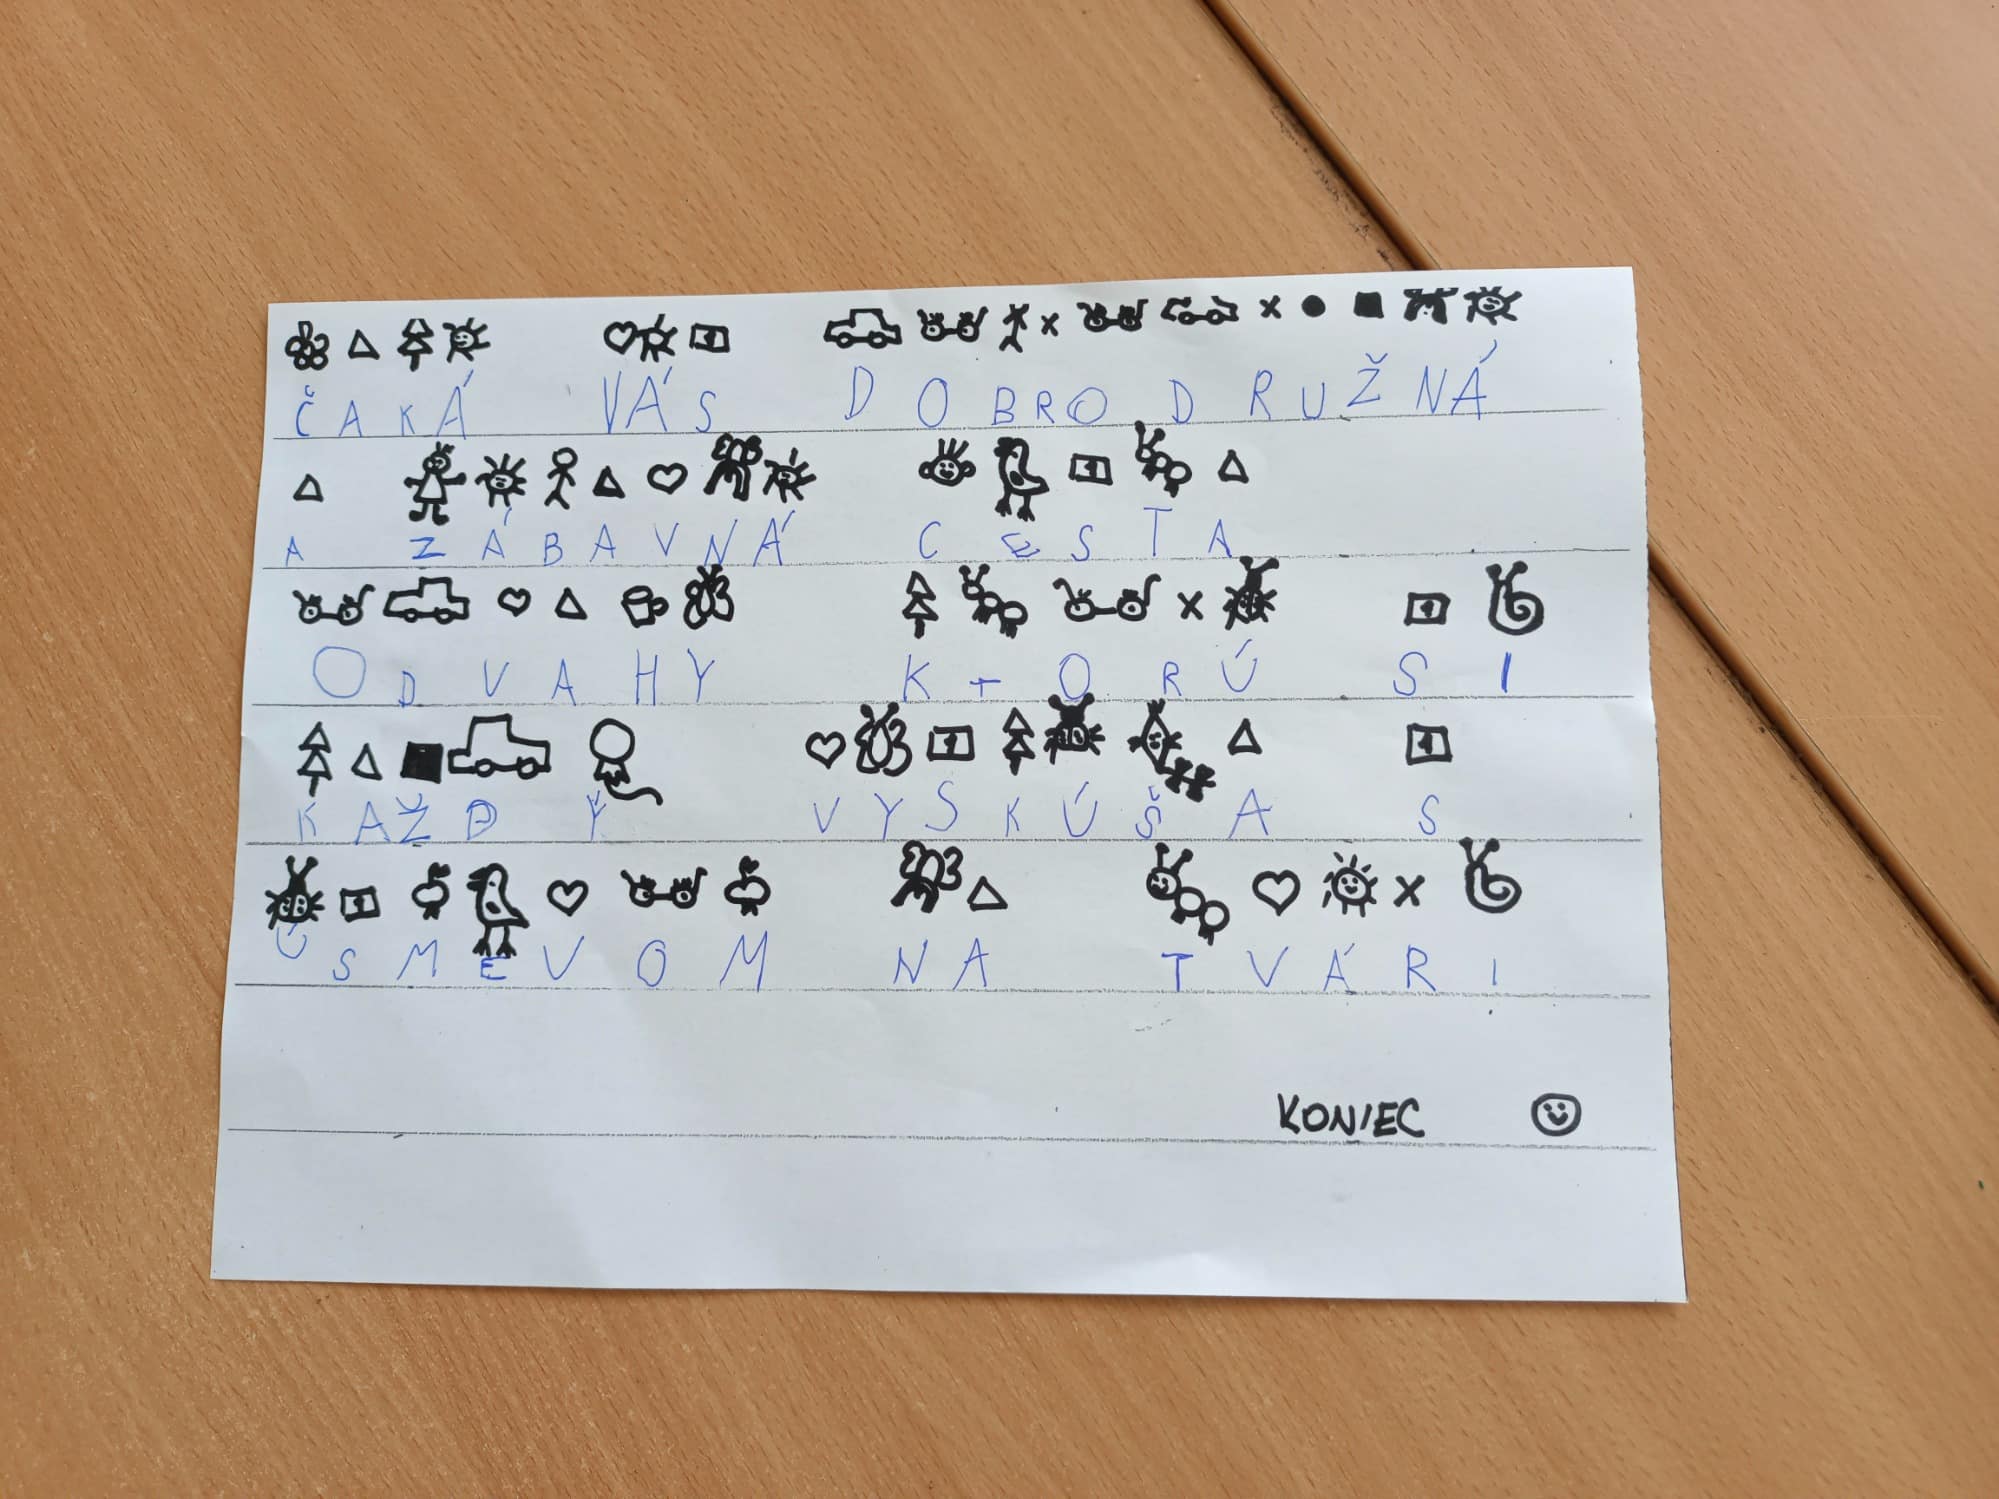 ČAKÁ VÁS DOBRODRUŽNÁ
A ZÁBAVNÁ CESTA
ODVAHY KTORÚ SI
KAŽDÝ VYSKÚŠA S
ÚSMEVOM NA TVÁRI
KONIEC